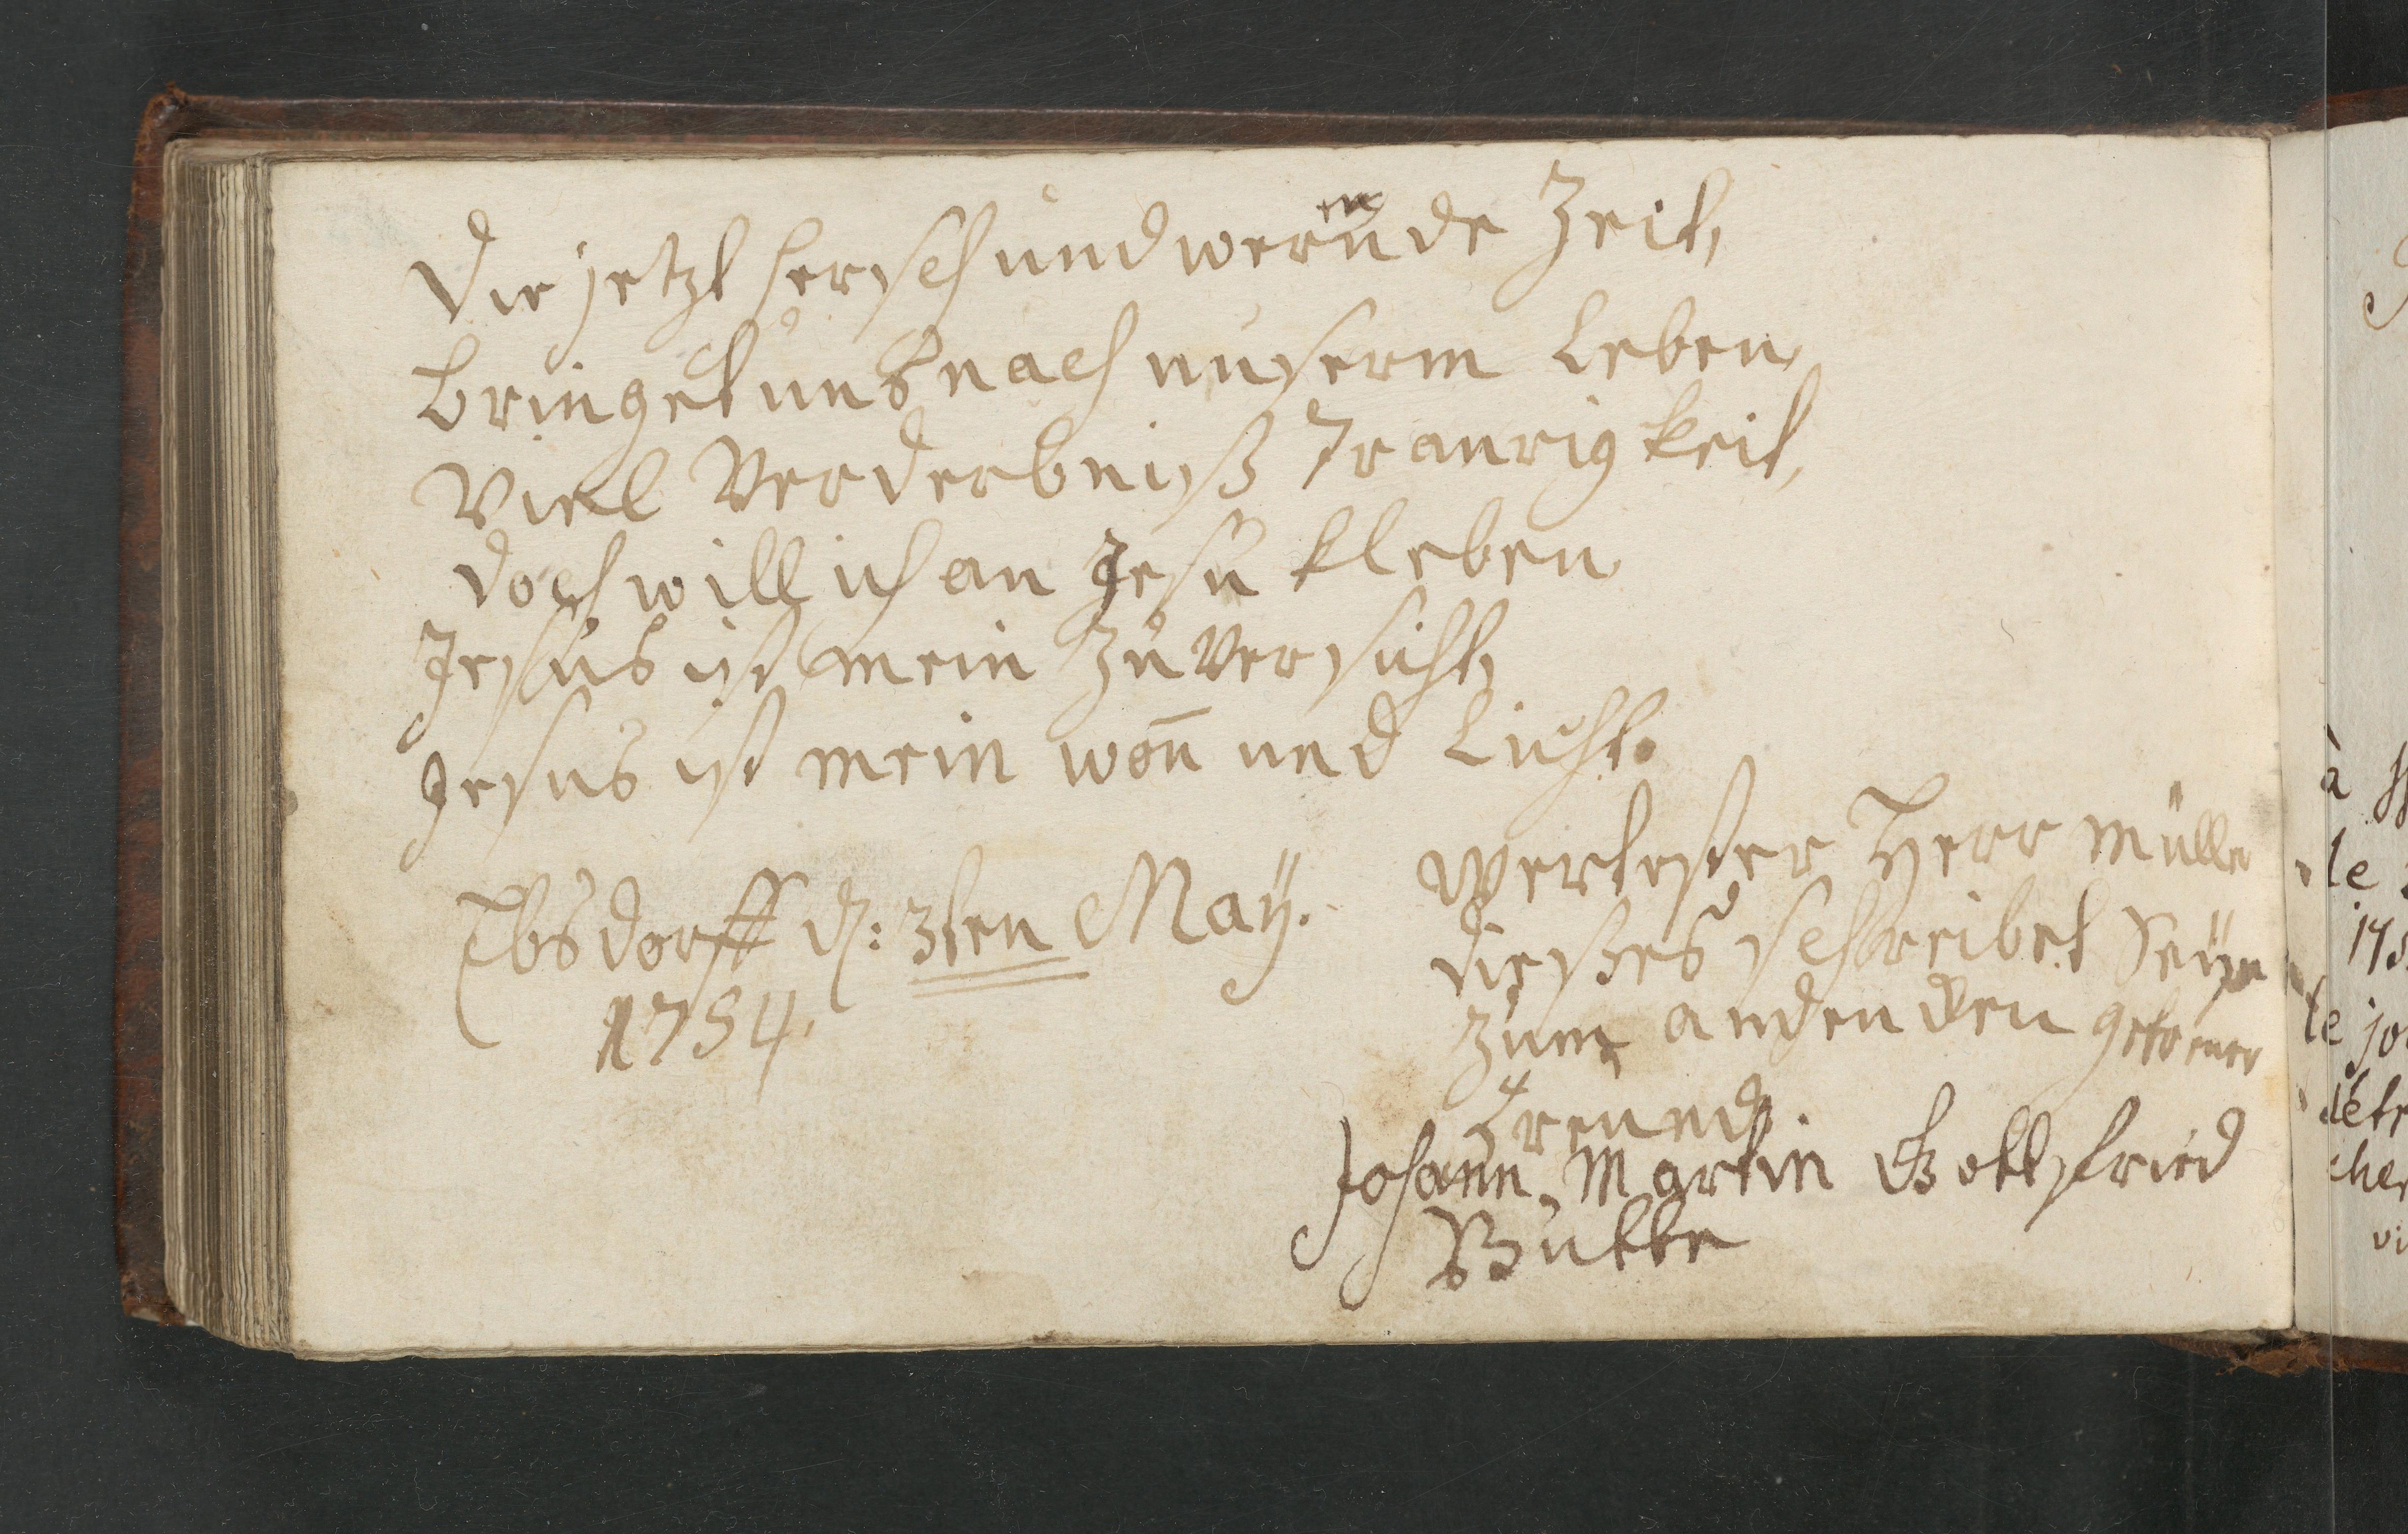 Die jetzt hersch und wernnde Zeit,
bringet uns nach unserm Leben,
Viel Verderbniß Traurigkeit,
doch will ich an Jesu kleben
Jesus ist mein Zuversicht,
Jesus ist mein won̄ und Licht.
Ebsdorff d: 3ten Maÿ.
1754.
Wertester Herr Müller
dießes schreibet seÿn
zum andencken getreuer
Freund.
Johann Martin Gottfried
Butte